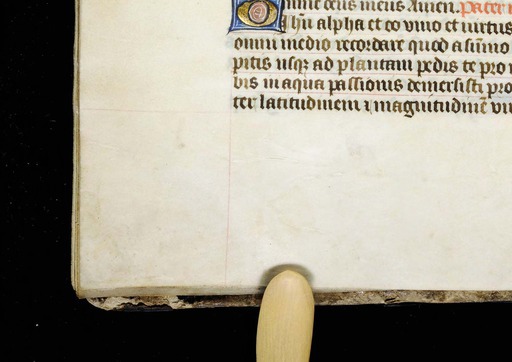 mine deus meus Amen. Pater n
O Jhu alpha et oo vivo et virtus
omni medio recordare quod a sum̄o
pitis usq̄ ad plantam pedis te pro n
bis in aqua passionis demersisti pro
ter latitudinem ⁊ magnitudinē vu